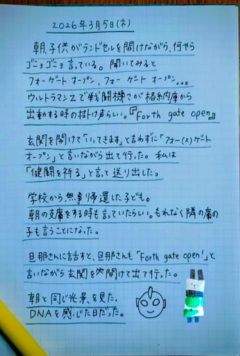 2026年3月5日(木)
朝子供がランドセルを開けながら、何やら
ゴニョゴニョ言っている。聞いてみると
フォーゲートオープン、フォーゲートオープン...
ウルトラマンZで戦闘機が格納庫から
出動する時の掛け声らしい。『Forth gate open』
玄関を開けて「いってきます」と言わずに「フォー(ス)ゲート
オープン」と言いながら出て行った。私は
「健闘を祈る」と言って送り出した。
学校から無事帰還した子ども。
朝の支度をする時も言っていたらしい。もれなく隣の席の
子も言うことになった。
旦那さんに話すと、旦那さんも「Forth gate open!」と
言いながら玄関を開けて出て行った。
朝と同じ光景を見た。
DNAを感じた日だった。